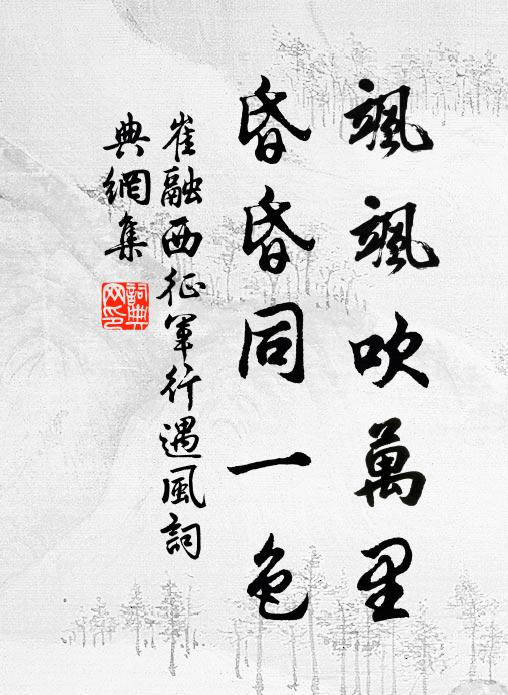 颯颯吹萬里
昏昏同一色
崔融西征軍行遇風詞
典網集
詞典
网印